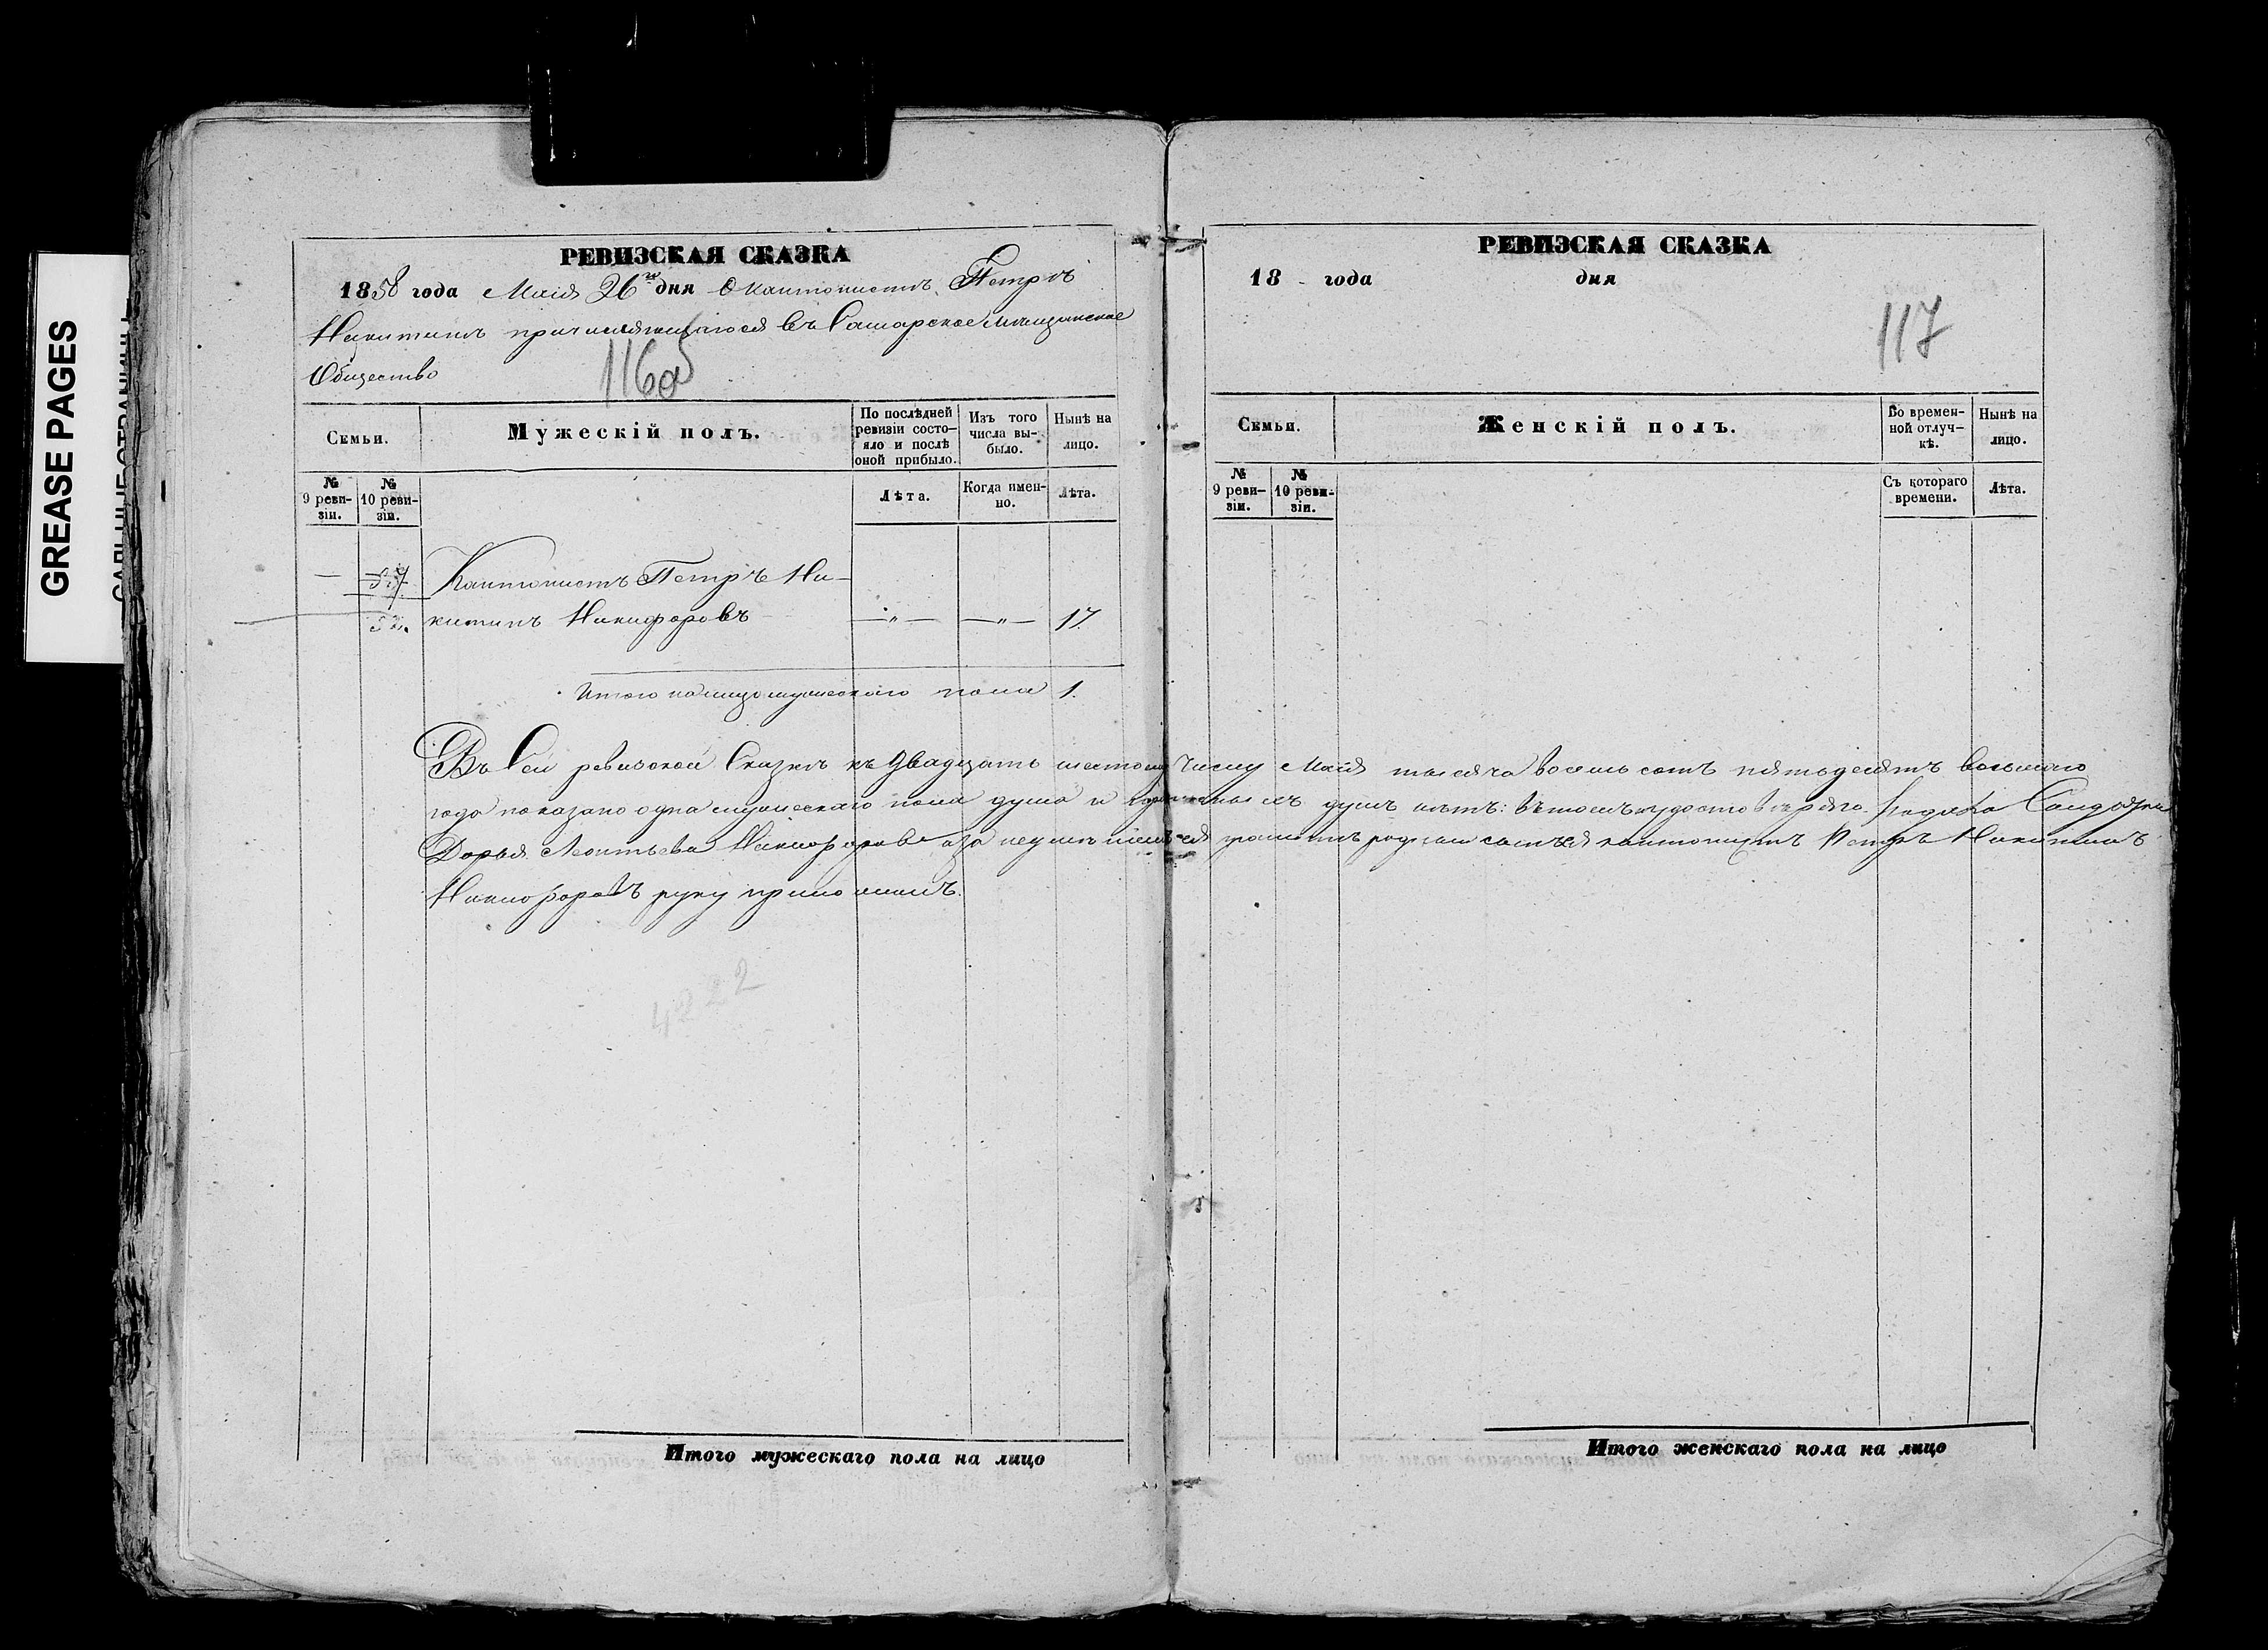 GREASE PAGES
РЕВИЗСКАЯ СКАЗКА
1858 года Маія 26го дня О кантонистѣ Петрѣ
Никитинѣ причисляющагося въ Самарское мѣщанское
Общество
116об
Семьи.
Мужескій полъ.
По послѣдней ревизіи состояло и послѣ оной прибыло.
Изъ того числа выбыло.
Нынѣ на лицо.
№ 9 ревизіи.
№ 10 ревизіи.
Лѣта.
Когда именно.
Лѣта.
— Кантонистъ Петръ Ни-
52. китинъ Никифоровъ —„— —„— 17.
Итого на лицо мужескаго пола 1.
Въ Сей ревизской Сказкѣ къ двадцать шестому Числу Маія тысяча восемь сотъ пятьдесятъ восьмаго
года показано одна мужескаго пола душа и душъ нѣтъ: въ томъ удостовѣряю Солдатка
Дарья Леонтьева Никифорова а за неумѣніемъ ея грамотѣ кантонистъ Петръ Никитинъ
Никифоровъ руку приложилъ.
4222
Итого мужескаго пола на лицо
РЕВИЗСКАЯ СКАЗКА
18 года дня
117
Семьи.
Женскій полъ.
Во временной отлучкѣ.
Нынѣ на лицо.
№ 9 ревизіи.
№ 10 ревизіи.
Съ котораго времени.
Лѣта.
Итого женскаго пола на лицо